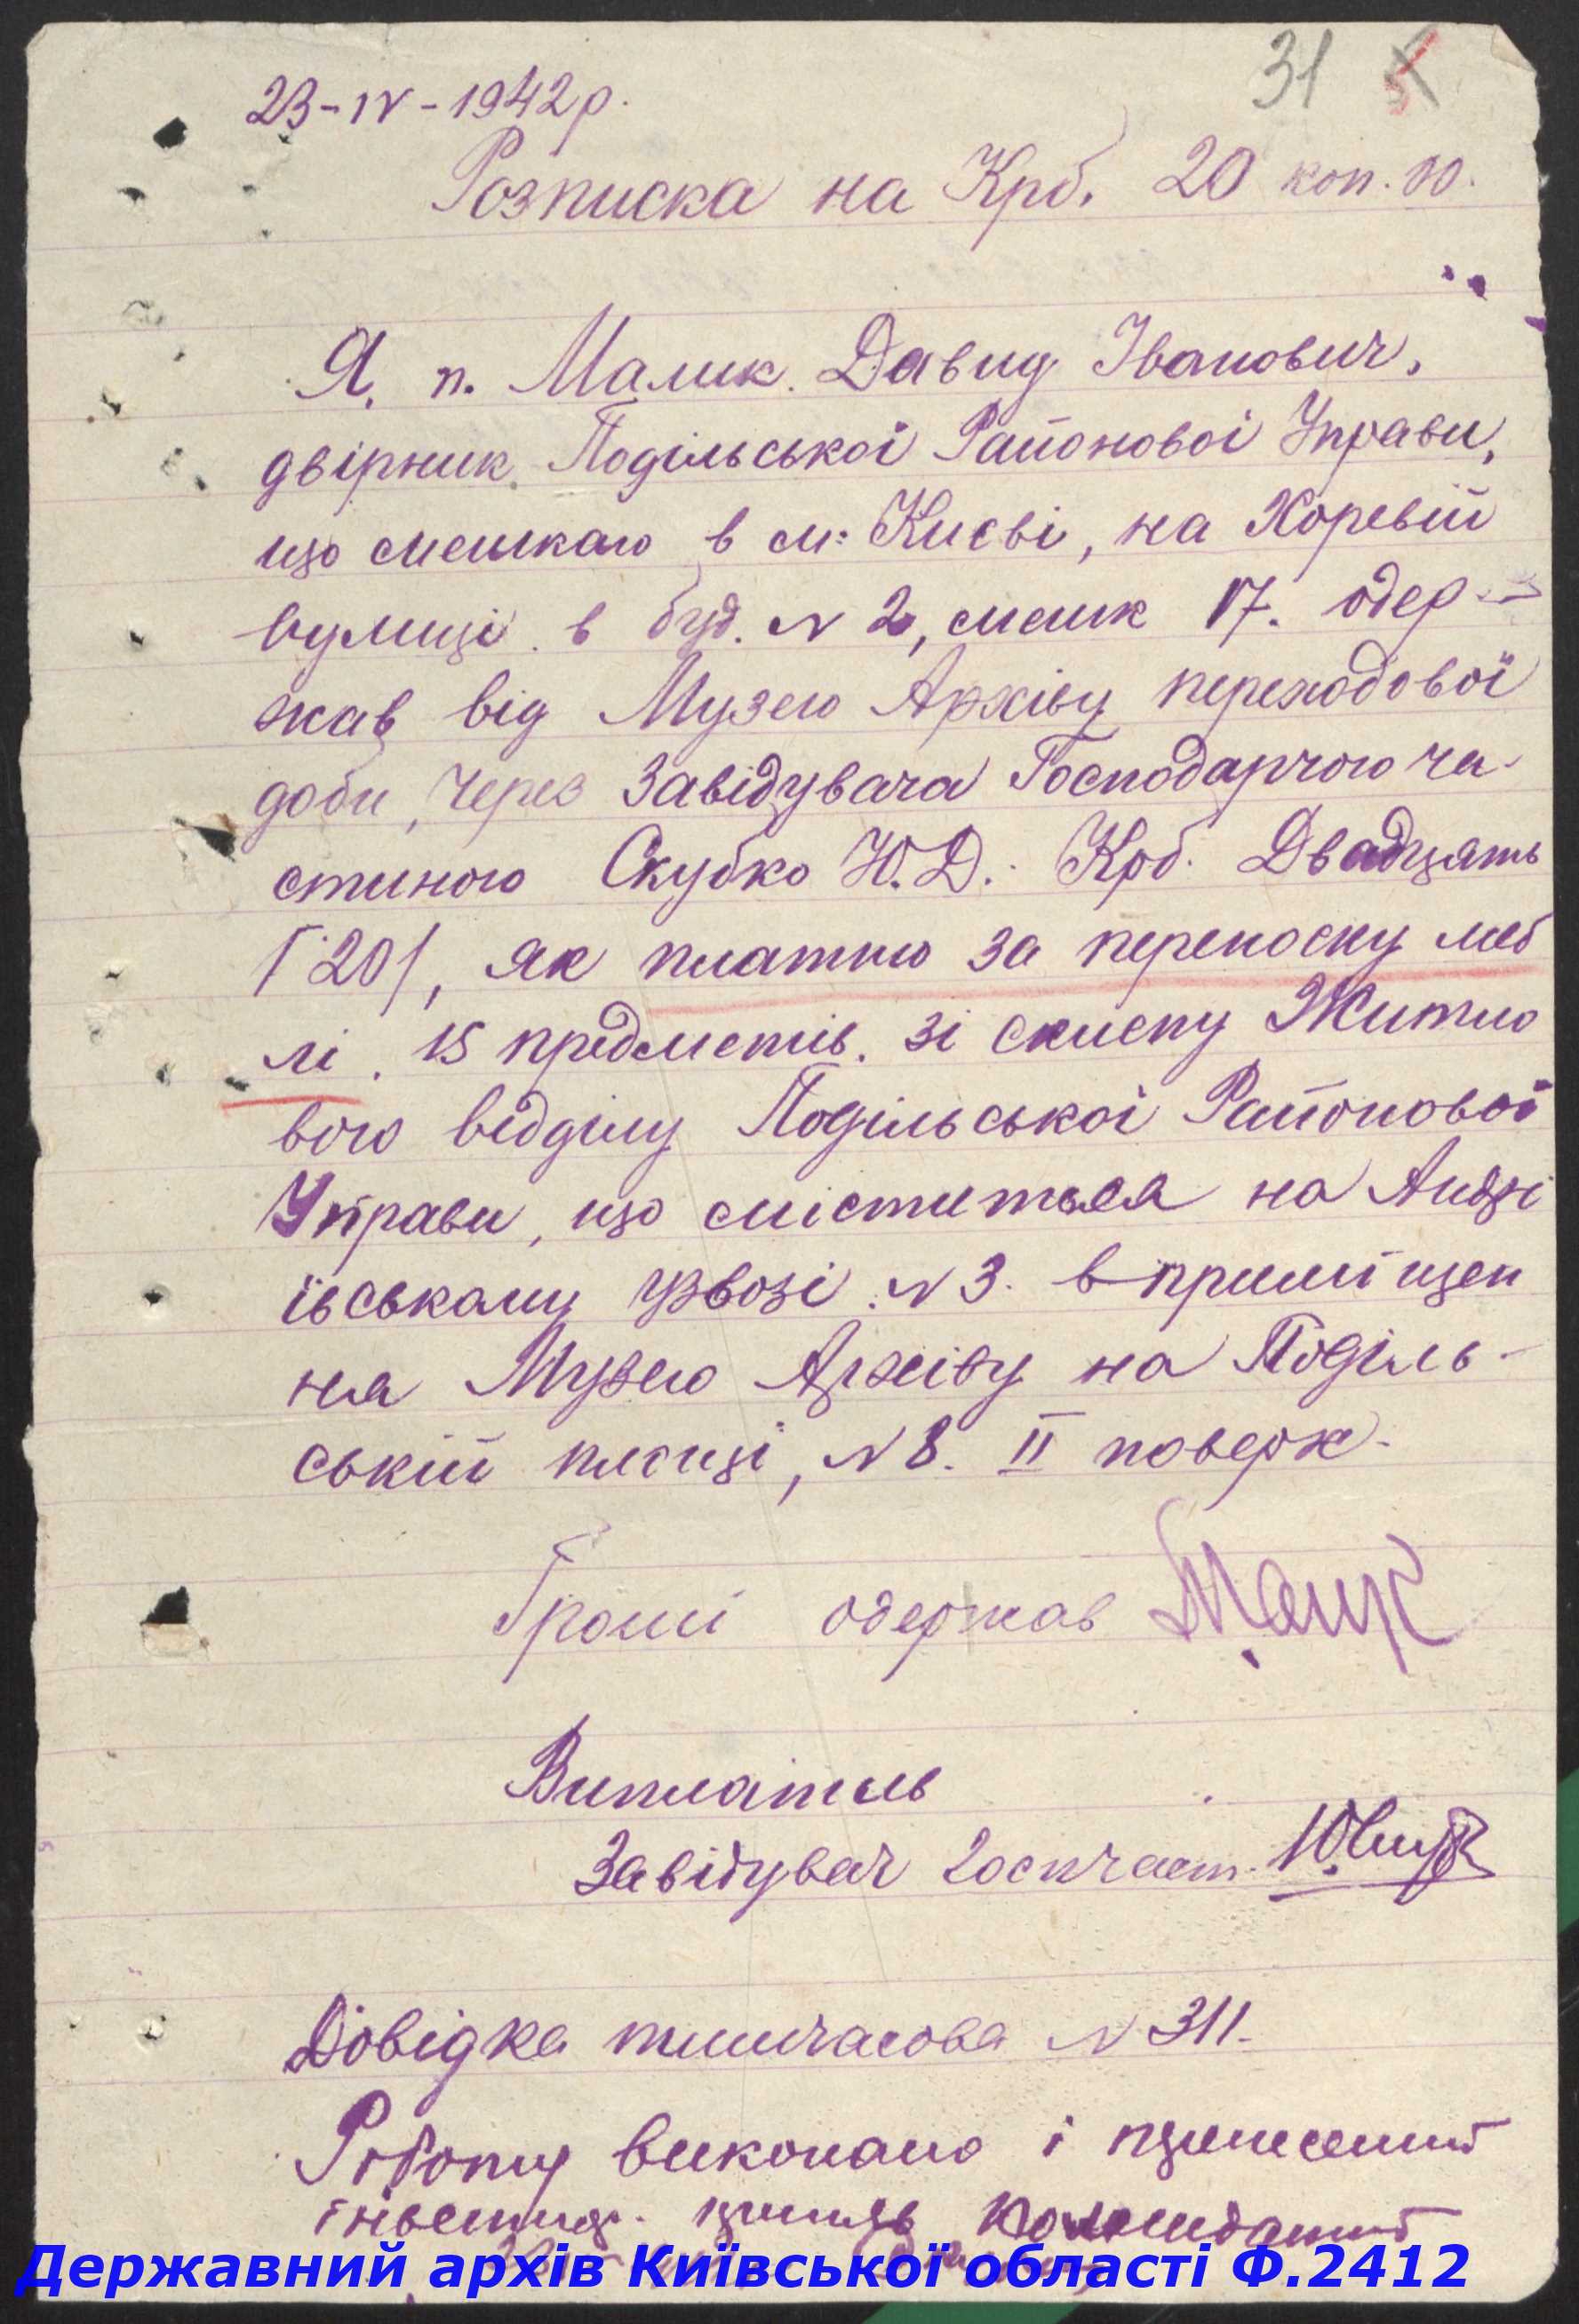 31
23-IV-1942р.
Розписка на Крб. 20 коп. 00.
Я, п. Малик Давид Іванович,
двірник Подільської Районової Управи,
що мешкаю в м. Києві, на Хоревій
вулиці в буд. N 2, мешк 17. одер-
жав від Музею Архіву переходової
доби, Через Завідувача Господарчою ча-
стиною Скубко Ю.Д. Крб. Двадцять
/20/, як платню за переноску меб
лі, 15 предметів. зі склепу Житло
вого відділу Подільської Районової
Управи, що міститься на Андрі
ївському узвозі N 3. в приміщен
ня Музею Архіву на Поділь-
ській площі, N 8. II поверх.
Гроші одержав
Виплатив
Завідувач госпчаст.
Довідка тимчасова N 311.
Роботу виконано і
прийняв Комендант
Державний архів Київської області Ф.2412